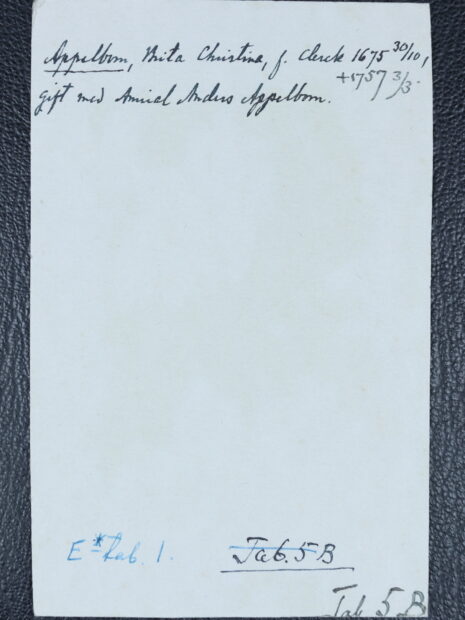 Appelbom, Brita Christina, f. Clerck 1675 30/10,
+1757 3/3.
gift med Amiral Anders Appelbom.
E* Tab. 1.
Tab. 5 B
Tab 5 B